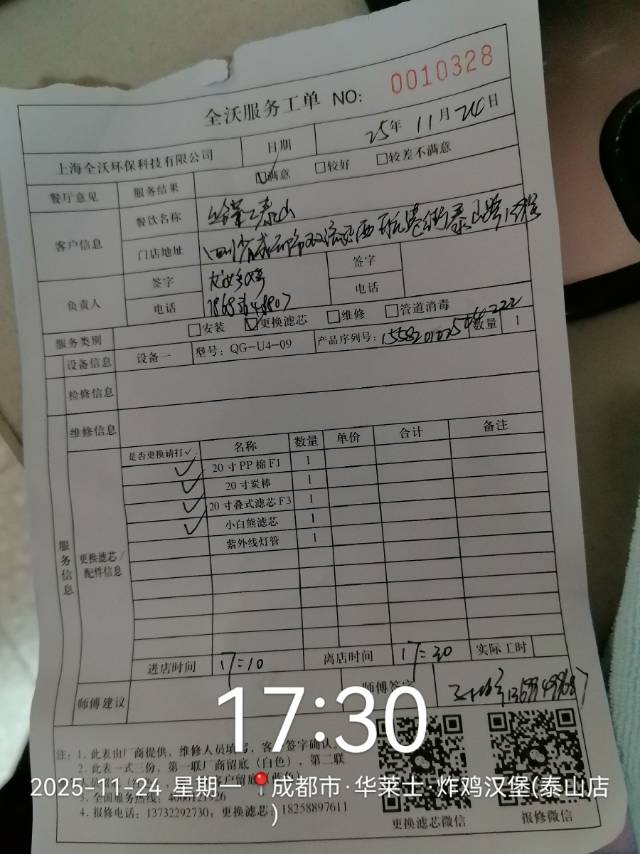 全沃服务工单 NO: 0010328
上海全沃环保科技有限公司 日期 25年 11月 24日
餐厅意见 服务结果 ☑满意 □较好 □较差不满意
客户信息 餐饮名称 泰山
门店地址 四川省成都市双流区西航港街泰山路
负责人 签字 签字
电话 电话
服务类别 □安装 ☑更换滤芯 □维修 □管道消毒
设备信息 设备一 型号: QG-U4-09 产品序列号: 数量 1
检修信息
维修信息
服务信息 更换滤芯/配件信息
是否更换请打✓ 名称 数量 单价 合计 备注
✓ 20寸PP棉F1 1
✓ 20寸炭棒 1
✓ 20寸叠式滤芯F3 1
✓ 小白熊滤芯 1
紫外线灯管 1
进店时间 17:10 离店时间 17:30 实际工时
师傅建议 师傅签字
17:30
注: 1. 此表由厂商提供, 维修人员填写, 客户签字确认
2. 此表一式三份, 第一联厂商留底(白色), 第二联
2025-11-24 星期一 成都市·华莱士·炸鸡汉堡(泰山店)
3. 全国服务热线:
4. 报修电话: 13732292730, 更换滤芯: 18258897611
更换滤芯微信 报修微信